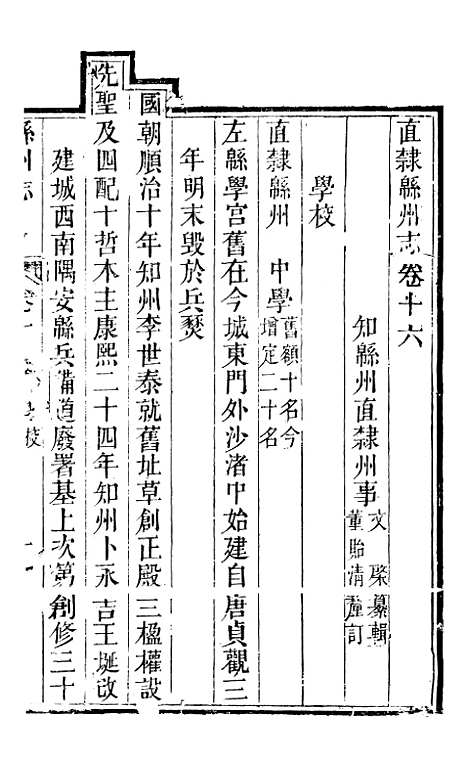 直隸緜州志卷十六
知緜州直隸州事文棨纂輯
董貽清釐訂
學校
直隸緜州 中學舊額十名今
增定二十名
左緜學宮舊在今城東門外沙渚中始建自唐貞觀三
年明末毀於兵燹
國朝順治十年知州李世泰就舊址草創正殿三楹權設
先聖及四配十哲木主康熙二十四年知州卜永吉王埏改
建城西南隅安緜兵備道廢署基上次第創修三十
緜州志 卷十 學校 一